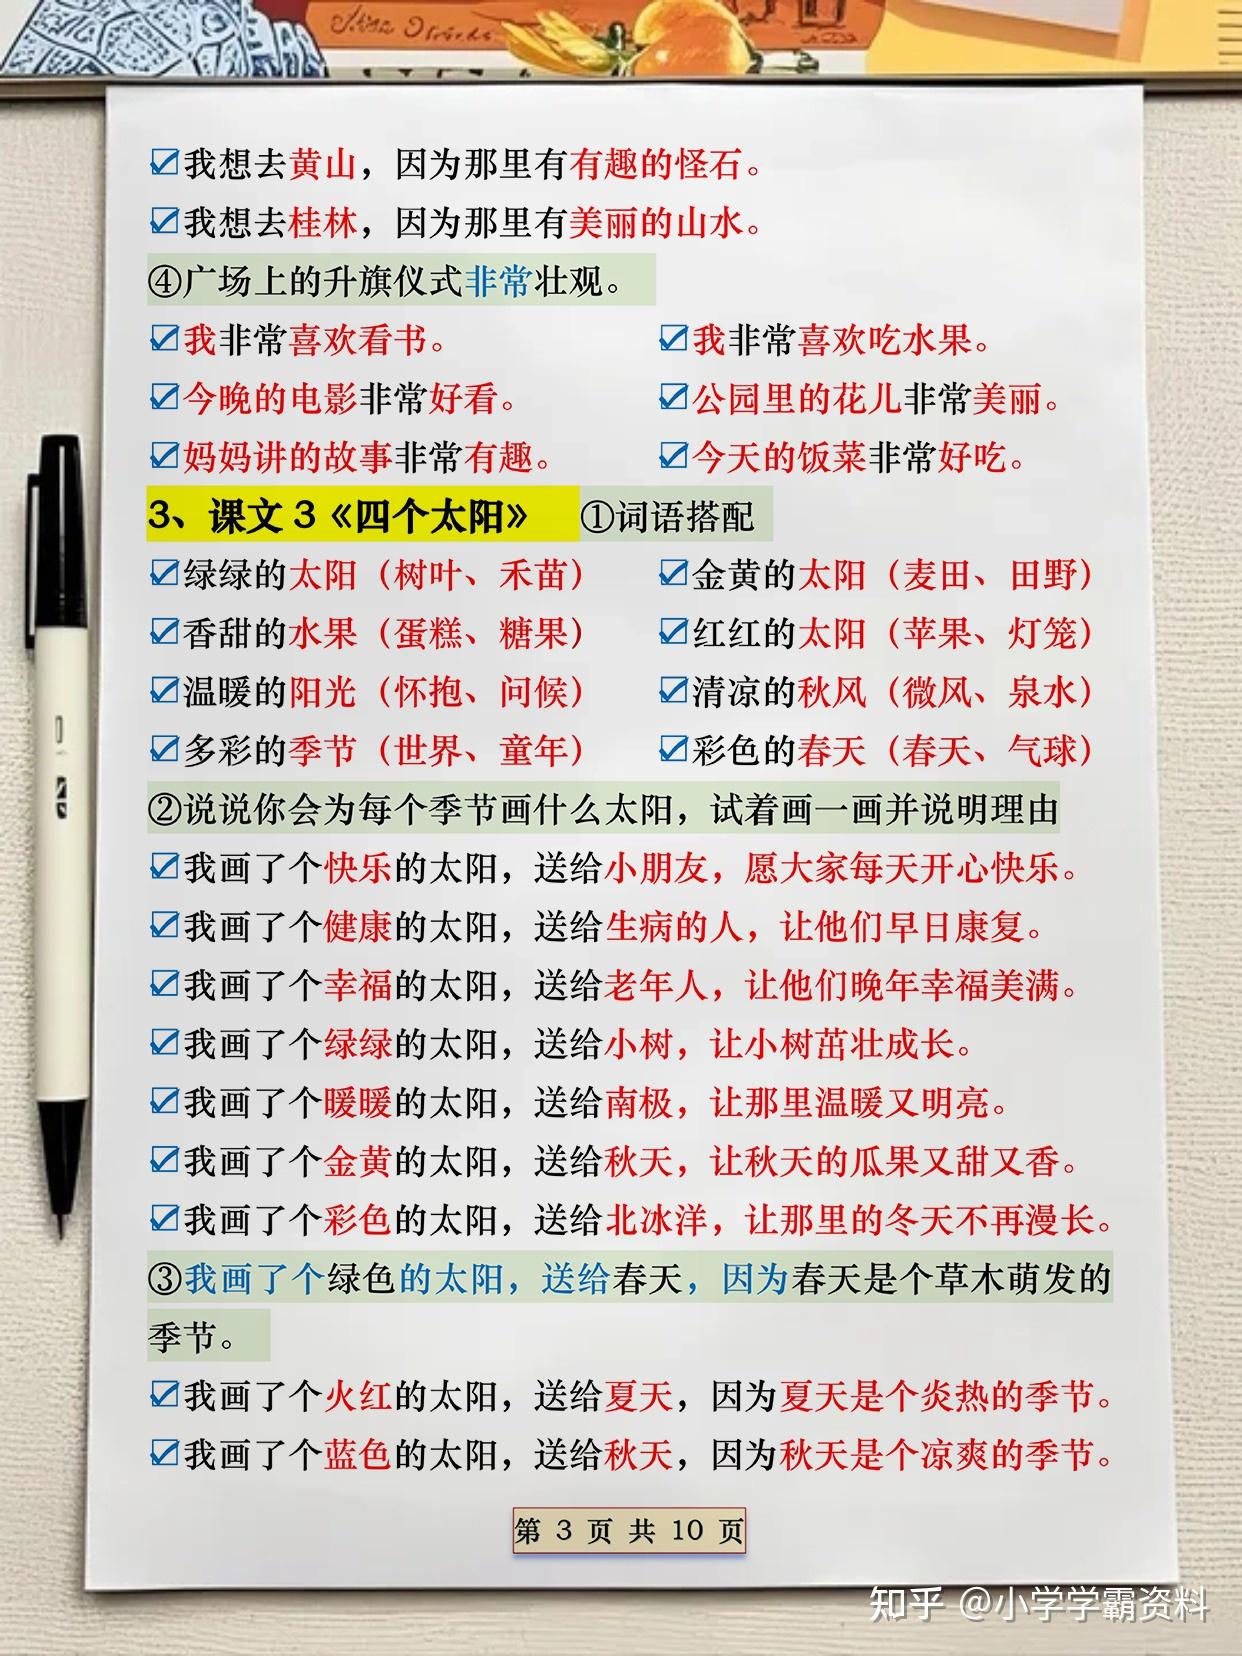 ☑我想去黄山，因为那里有有趣的怪石。
☑我想去桂林，因为那里有美丽的山水。
④广场上的升旗仪式非常壮观。
☑我非常喜欢看书。 ☑我非常喜欢吃水果。
☑今晚的电影非常好看。 ☑公园里的花儿非常美丽。
☑妈妈讲的故事非常有趣。 ☑今天的饭菜非常好吃。
3、课文 3《四个太阳》 ①词语搭配
☑绿绿的太阳（树叶、禾苗） ☑金黄的太阳（麦田、田野）
☑香甜的水果（蛋糕、糖果） ☑红红的太阳（苹果、灯笼）
☑温暖的阳光（怀抱、问候） ☑清凉的秋风（微风、泉水）
☑多彩的季节（世界、童年） ☑彩色的春天（春天、气球）
②说说你会为每个季节画什么太阳，试着画一画并说明理由
☑我画了个快乐的太阳，送给小朋友，愿大家每天开心快乐。
☑我画了个健康的太阳，送给生病的人，让他们早日康复。
☑我画了个幸福的太阳，送给老年人，让他们晚年幸福美满。
☑我画了个绿绿的太阳，送给小树，让小树茁壮成长。
☑我画了个暖暖的太阳，送给南极，让那里温暖又明亮。
☑我画了个金黄的太阳，送给秋天，让秋天的瓜果又甜又香。
☑我画了个彩色的太阳，送给北冰洋，让那里的冬天不再漫长。
③我画了个绿色的太阳，送给春天，因为春天是个草木萌发的
季节。
☑我画了个火红的太阳，送给夏天，因为夏天是个炎热的季节。
☑我画了个蓝色的太阳，送给秋天，因为秋天是个凉爽的季节。
第 3 页 共 10 页
知乎 @小学学霸资料